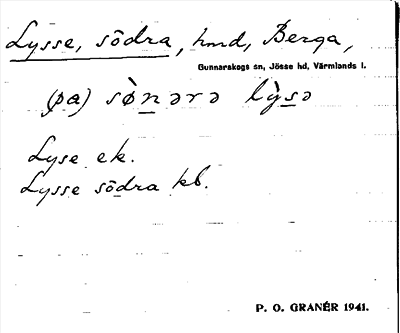 Lysse, södra, hmd, Berga,
Gunnarskogs sn, Jösse hd, Värmlands l.
(pa) sø̀nərə lỳsə
Lyse ek.
Lysse södra kb.
P. O. GRANÉR 1941.